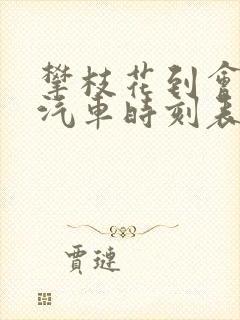 攀枝花到會
汽車時刻表
賈璉